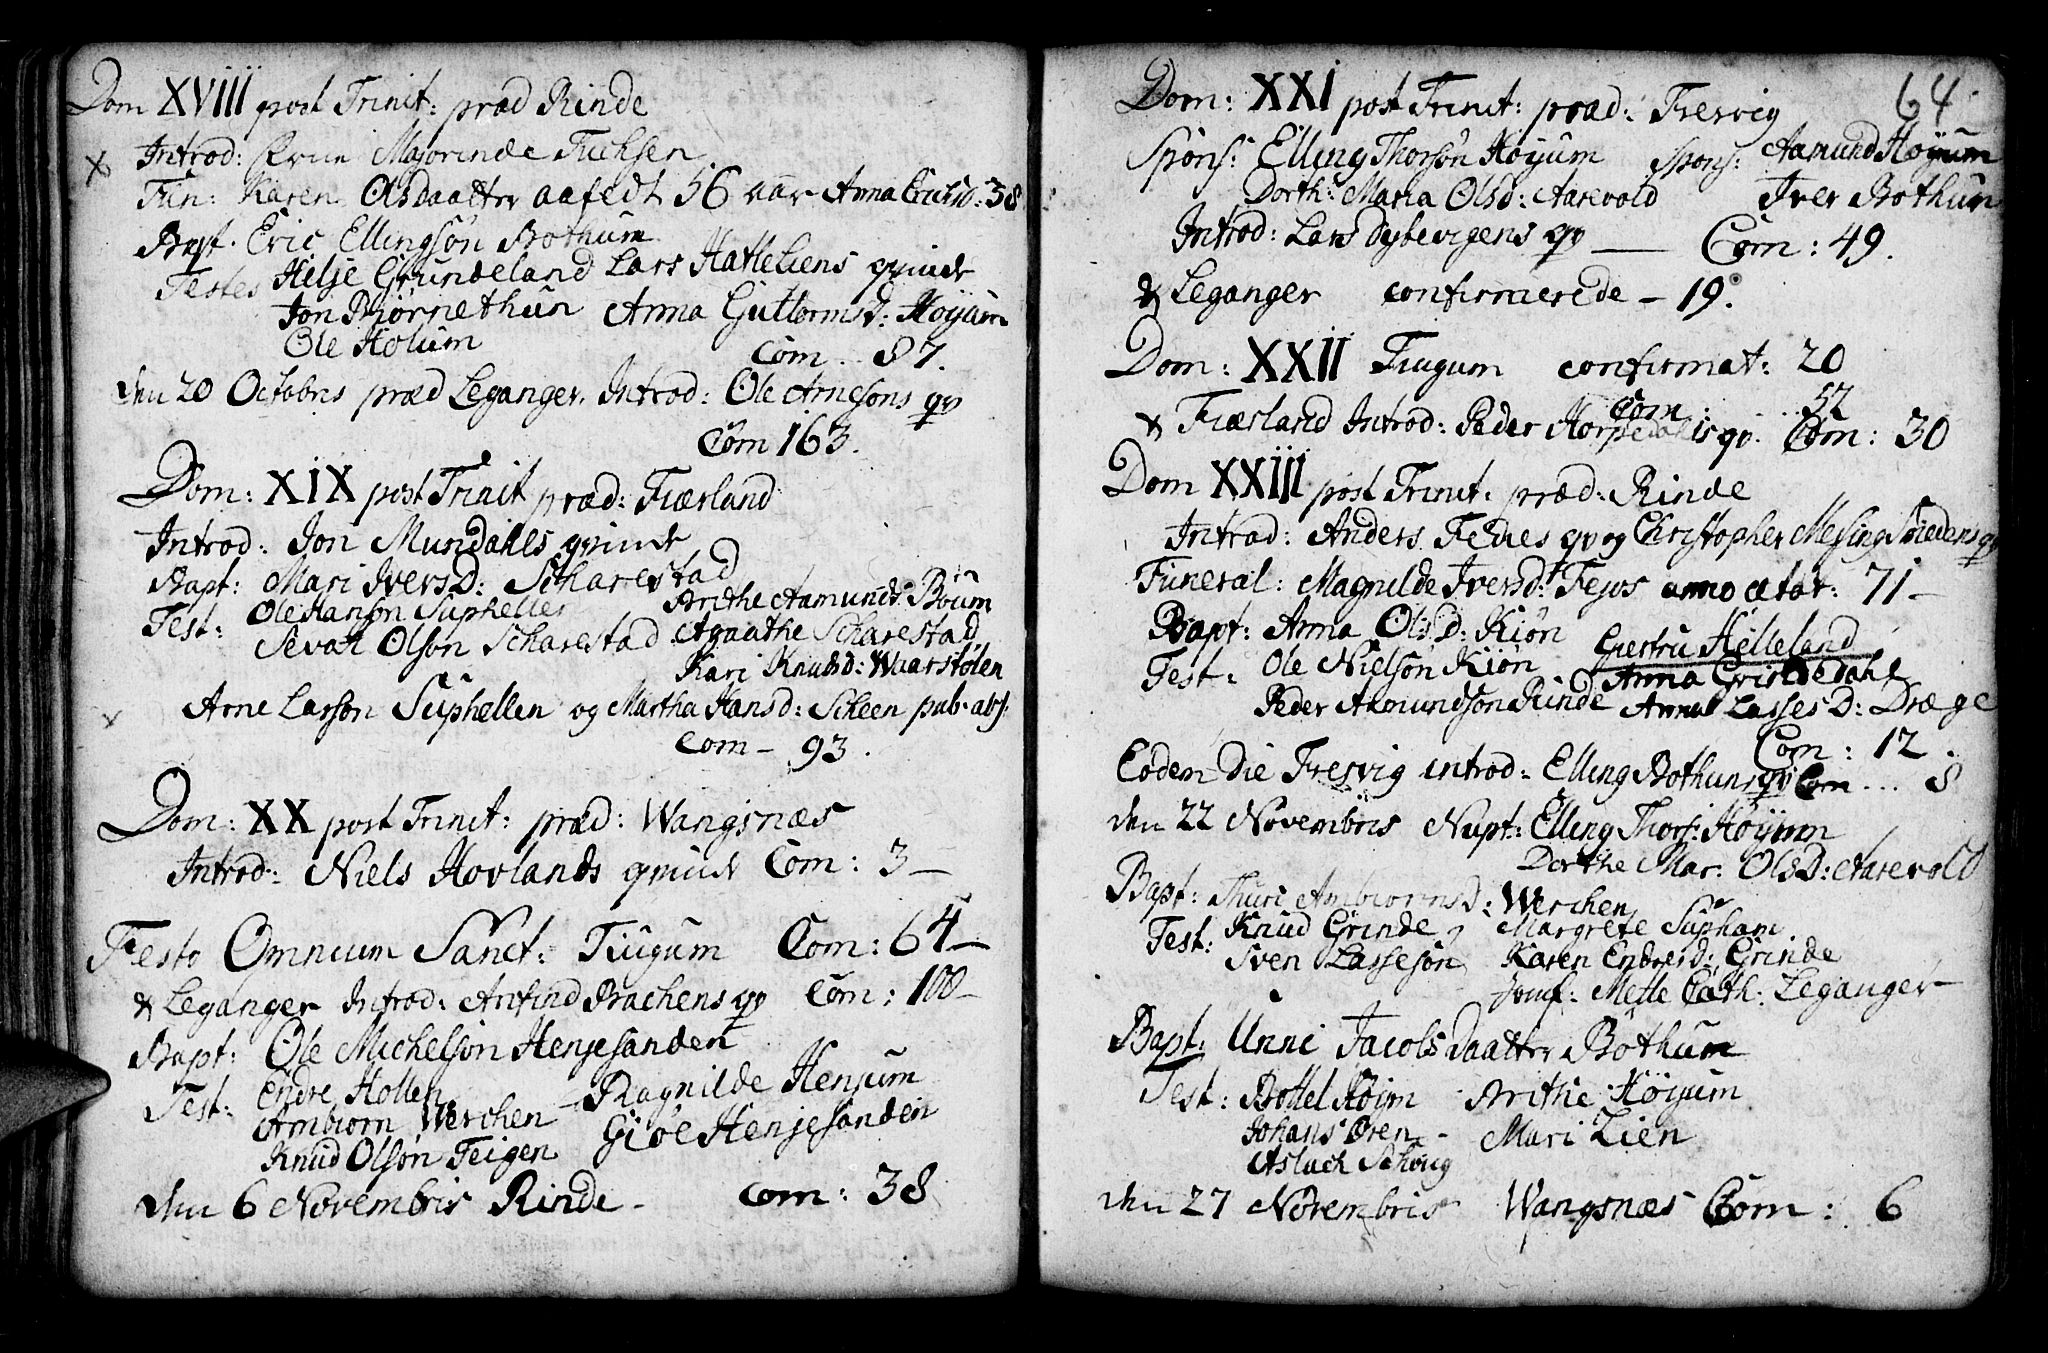 Dom XVIII post Trinit: præd Rinde
Introd: Frue Majorinde Fuchsen
Fun: Karen Olsdaatter aafedt 56 aar Anna Erichsd: 38
Bapt. Eric Ellingsøn Bothum
Testes Helje Grundeland Lars Hatleliens qvinde
Jon Biørnethun Anna Guttormsd: Høyum
Ole Holum
Com 87.
den 20 Octobris præd Leganger. Introd: Ole Arnesøns qv
Com 163.
Dom: XIX post Trinit præd: Fiærland
Introd: Jon Mundahls qvinde
Bapt: Mari IversD: Scharestad
Test: Ole Hansøn Suphellen Brithe Aamunds: Bøum
Sevat Olsøn Scharestad Agaathe Scharestad
Kari Knudsd: Waarstølen
Arne Larsøn Suphellen og Martha Hansd: Scheen pub. abs.
Com - 93.
Dom: XX post Trinit: præd: Wangsnæs
Introd: Niels Hovlands qvinde Com: 3 -
Festo Omnium Sanct: Tiugum Com: 64 -
& Leganger Introd: Anfind Bachens qv Com: 100 -
Bapt: Ole Michelsøn Henjesanden
Test: Endre Hollen - Ragnilde Henjum
Ambiørn Werchen Giøe Henjesanden
Knud Olsøn Feigen
den 6 Novembris Rinde - Com: 38
64.
Dom: XXI post Trinit: præd: Fresvig
Spons: Elling Thorsøn Høyum Spons: Aamund Høyum
Dorth: Maria Olsd: Aarevold Iver Bothum
Introd: Lars Dybevigens qv Com: 49.
& Leganger confirmerede - 19.
Dom: XXII Tiugum confirmat: 20
Com: 52
& Fiærland Introd: Peder Horpedals qv. Com: 30
Dom XXIII post Trinit: præd: Rinde
Introd: Anders Fedies qv og Christopher Messing Smedens qv
Funeral: Magnilde Iversd: Fejos anno ætat: 71 -
Bapt: Anna OlsD: Kiøn
Test: Ole Nielsøn Kiøn Giertru Helleland
Anna Grindedahl
Peder Aamundsøn Rinde Anna LassesD: Dræge
Com: 12.
Eodem Die Fresvig introd: Elling Bothuns qv Com ... 8
den 22 Novembris Nupt: Elling Thors: Høyum
Dorthe Mar: OlsD: Aarevold
Bapt: Thuri Ambiørnsd: Werchen
Test: Knud Grinde, Margrete Supham.
Sven Lassesøn, Karen Endresd: Grinde
Jomf: Mette Cath: Leganger
Bapt: Unni Jacobsdaatter Bothum
Test: Bottel Høim - Brithe Høyum
Johans Øren - Mari Lien
Aslach
den 27 Novembris Wangsnæs Com: 6